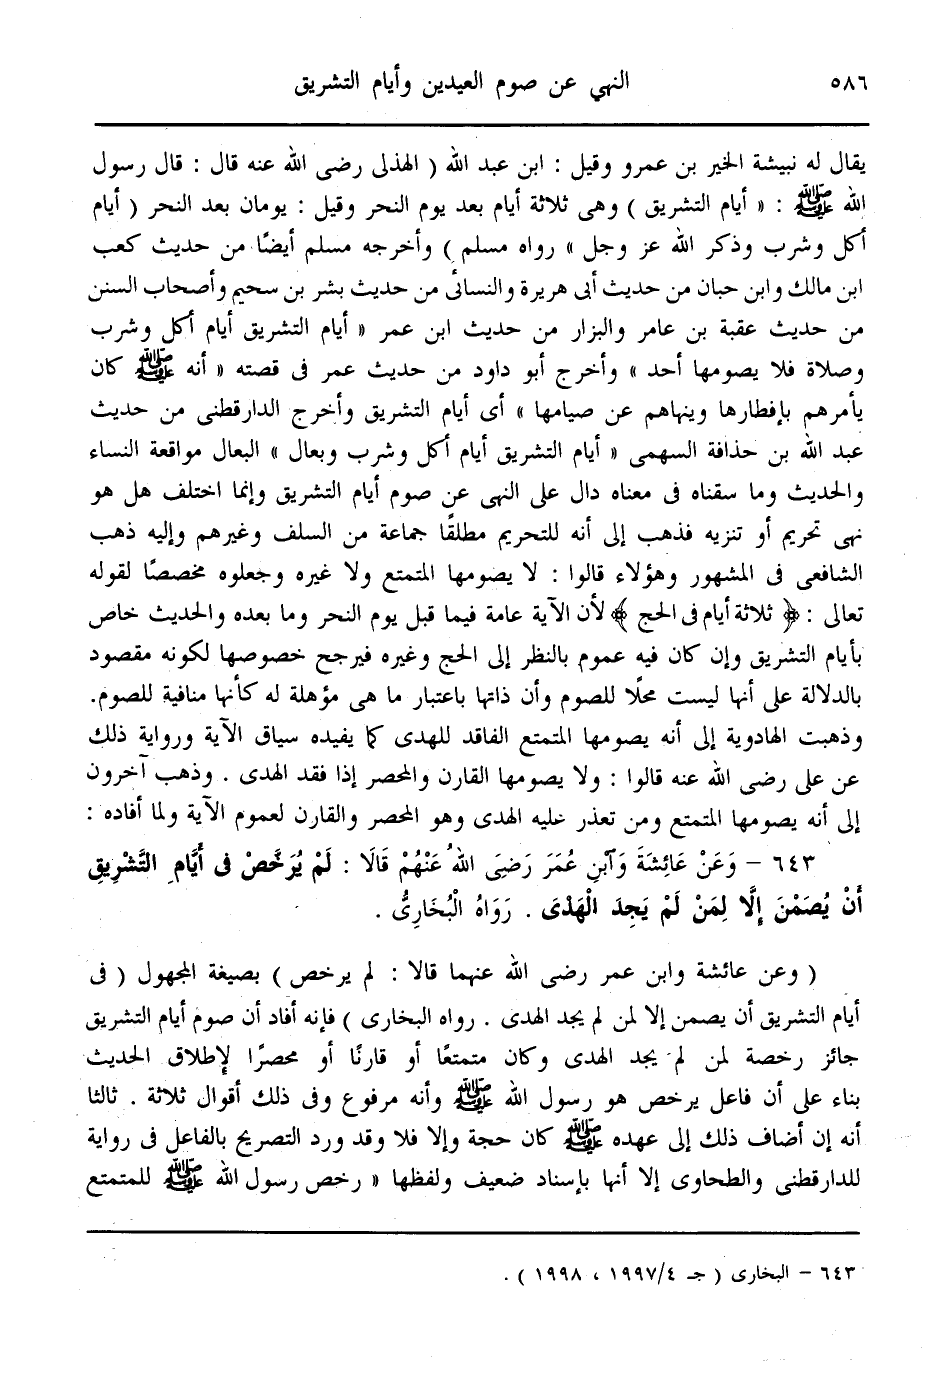 ٥٨٦ النهي عن صوم العيدين وأيام التشريق
يقال له نبيشة الخير بن عمرو وقيل : ابن عبد الله ( الهذلى رضى الله عنه قال : قال رسول
الله ﷺ : « أيام التشريق ) وهى ثلاثة أيام بعد يوم النحر وقيل : يومان بعد النحر ( أيام
أكل وشرب وذكر الله عز وجل » رواه مسلم ) وأخرجه مسلم أيضًا من حديث كعب
ابن مالك وابن حبان من حديث أبى هريرة والنسائى من حديث بشر بن سحيم وأصحاب السنن
من حديث عقبة بن عامر والبزار من حديث ابن عمر « أيام التشريق أيام أكل وشرب
وصلاة فلا يصومها أحد » وأخرج أبو داود من حديث عمر فى قصته « أنه ﷺ كان
يأمرهم بإفطارها وينهاهم عن صيامها » أى أيام التشريق وأخرج الدارقطنى من حديث
عبد الله بن حذافة السهمى « أيام التشريق أيام أكل وشرب وبعال » البعال مواقعة النساء
والحديث وما سقناه فى معناه دال على النهى عن صوم أيام التشريق وإنما اختلف هل هو
نهى تحريم أو تنزيه فذهب إلى أنه للتحريم مطلقًا جماعة من السلف وغيرهم وإليه ذهب
الشافعى فى المشهور وهؤلاء قالوا : لا يصومها المتمتع ولا غيره وجعلوه مخصصًا لقوله
تعالى : ﴿ ثلاثة أيام فى الحج ﴾ لأن الآية عامة فيما قبل يوم النحر وما بعده والحديث خاص
بأيام التشريق وإن كان فيه عموم بالنظر إلى الحج وغيره فيرجح خصوصها لكونه مقصود
بالدلالة على أنها ليست محلًا للصوم وأن ذاتها باعتبار ما هى مؤهلة له كأنها منافية للصوم.
وذهبت الهادوية إلى أنه يصومها المتمتع الفاقد للهدى كما يفيده سياق الآية ورواية ذلك
عن على رضى الله عنه قالوا : ولا يصومها القارن والمحصر إذا فقد الهدى . وذهب آخرون
إلى أنه يصومها المتمتع ومن تعذر عليه الهدى وهو المحصر والقارن لعموم الآية ولما أفاده :
٦٤٣ – وَعَنْ عَائِشَةَ وَآبْنِ عُمَرَ رَضِيَ اللهُ عَنْهُمْ قَالَا : لَمْ يُرَخَّصْ فِى أَيَّامِ التَّشْرِيقِ
أَنْ يُصَمْنَ إِلَّا لِمَنْ لَمْ يَجِدَ الْهَدْىَ . رَوَاهُ الْبُخَارِىُّ .
( وعن عائشة وابن عمر رضى الله عنهما قالا : لم يرخص ) بصيغة المجهول ( فى
أيام التشريق أن يصمن إلا لمن لم يجد الهدى . رواه البخارى ) فإنه أفاد أن صوم أيام التشريق
جائز رخصة لمن لم يجد الهدى وكان متمتعًا أو قارنًا أو محصرًا لإطلاق الحديث
بناء على أن فاعل يرخص هو رسول الله ﷺ وأنه مرفوع وفى ذلك أقوال ثلاثة . ثالثا
أنه إن أضاف ذلك إلى عهده ﷺ كان حجة وإلا فلا وقد ورد التصريح بالفاعل فى رواية
للدارقطنى والطحاوى إلا أنها بإسناد ضعيف ولفظها « رخص رسول الله ﷺ للمتمتع
٦٤٣ – البخارى ( جـ ٤/١٩٩٧ ، ١٩٩٨ ) .